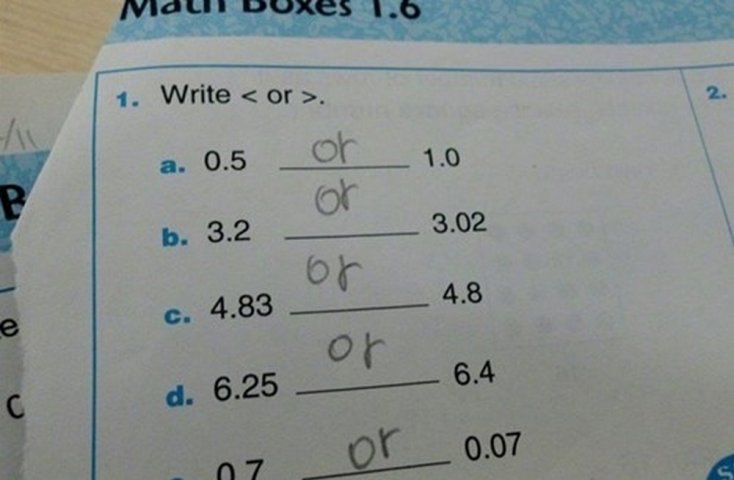 Math Boxes 1.6
1. Write < or >.
2.
a. 0.5 or 1.0
b. 3.2 or 3.02
c. 4.83 or 4.8
d. 6.25 or 6.4
0.7 or 0.07
B
e